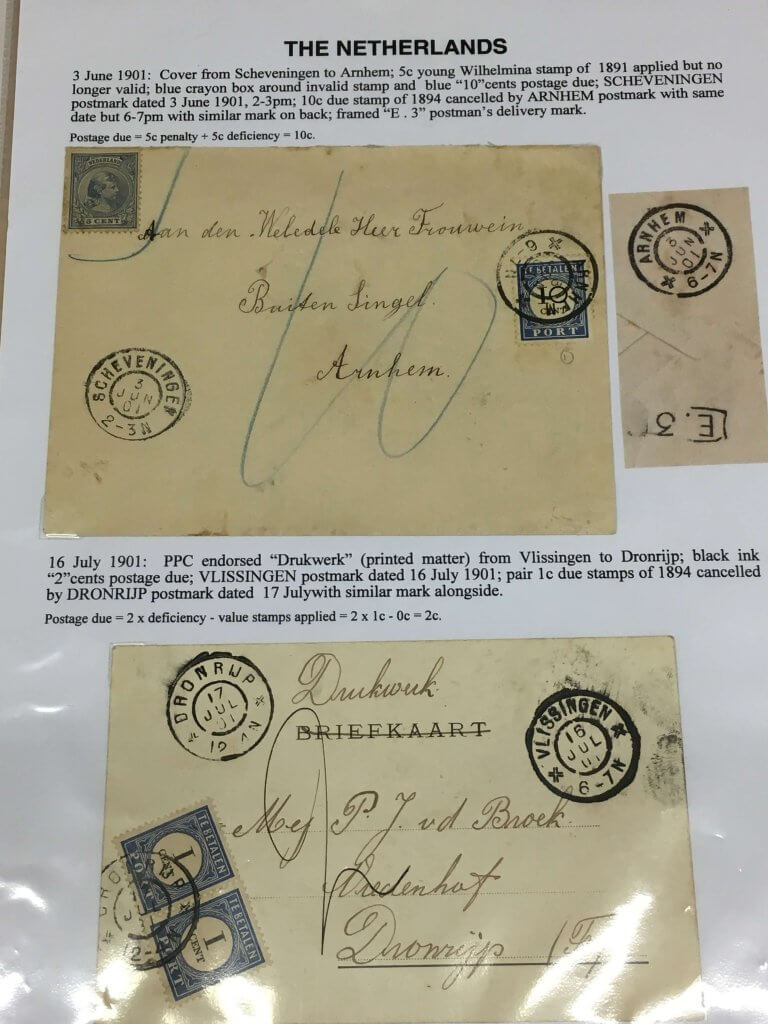 THE NETHERLANDS
3 June 1901: Cover from Scheveningen to Arnhem; 5c young Wilhelmina stamp of 1891 applied but no
longer valid; blue crayon box around invalid stamp and blue “10”cents postage due; SCHEVENINGEN
postmark dated 3 June 1901, 2-3pm; 10c due stamp of 1894 cancelled by ARNHEM postmark with same
date but 6-7pm with similar mark on back; framed “E . 3” postman's delivery mark.
Postage due = 5c penalty + 5c deficiency = 10c.
NEDERLAND
5 CENT
Aan den Weledele Heer Frouwein
Buiten Singel.
Arnhem.
10
TE BETALEN
10
CENT
PORT
SCHEVENINGEN
3
JUN
01
2-3N
ARNHEM
3
JUN
01
6-7N
E.3
16 July 1901: PPC endorsed “Drukwerk” (printed matter) from Vlissingen to Dronrijp; black ink
“2”cents postage due; VLISSINGEN postmark dated 16 July 1901; pair 1c due stamps of 1894 cancelled
by DRONRIJP postmark dated 17 Julywith similar mark alongside.
Postage due = 2 x deficiency - value stamps applied = 2 x 1c - 0c = 2c.
DRONRIJP
17
JUL
01
Drukwerk
BRIEFKAART
VLISSINGEN
16
JUL
01
6-7N
Mej P. J. vd Broek
Vredenhof
Dronrijp (Fr.
TE BETALEN
1
CENT
PORT
TE BETALEN
1
CENT
PORT